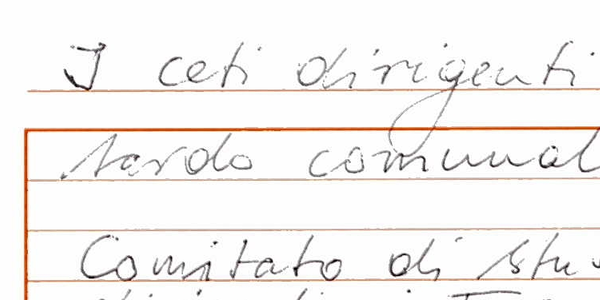 I ceti dirigenti
tardo comunal
Comitato di stu